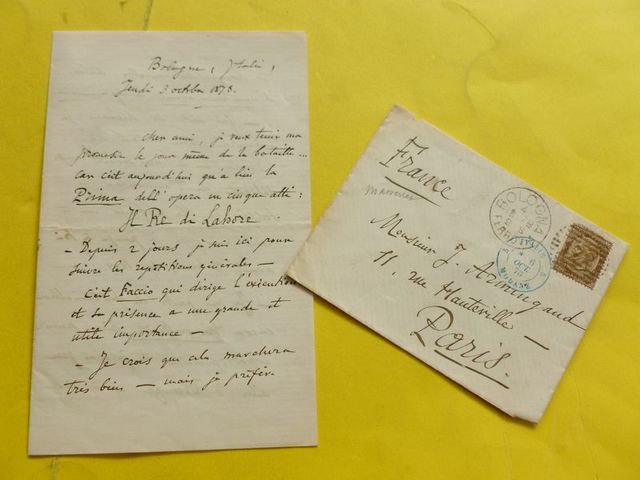 Bologne, Italie,
Jeudi 3 octbre 1878.
Cher ami, je veux tenir ma
promesse le jour même de la bataille...
car c'est aujourd'hui qu'a lieu la
Prima dell' opera in cinque atti:
Il Re di Lahore
- Depuis 2 jours je suis ici pour
suivre les répétitions générales -
C'est Faccio qui dirige l'exécution
et sa présence a une grande et
utile importance -
- Je crois que cela marchera
très bien - mais je préfère
France
Massenet
BOLOGNA
FERROVIA
6
OCT
MODANE
Monsieur J. Armingaud
11, rue Hauteville -
Paris.